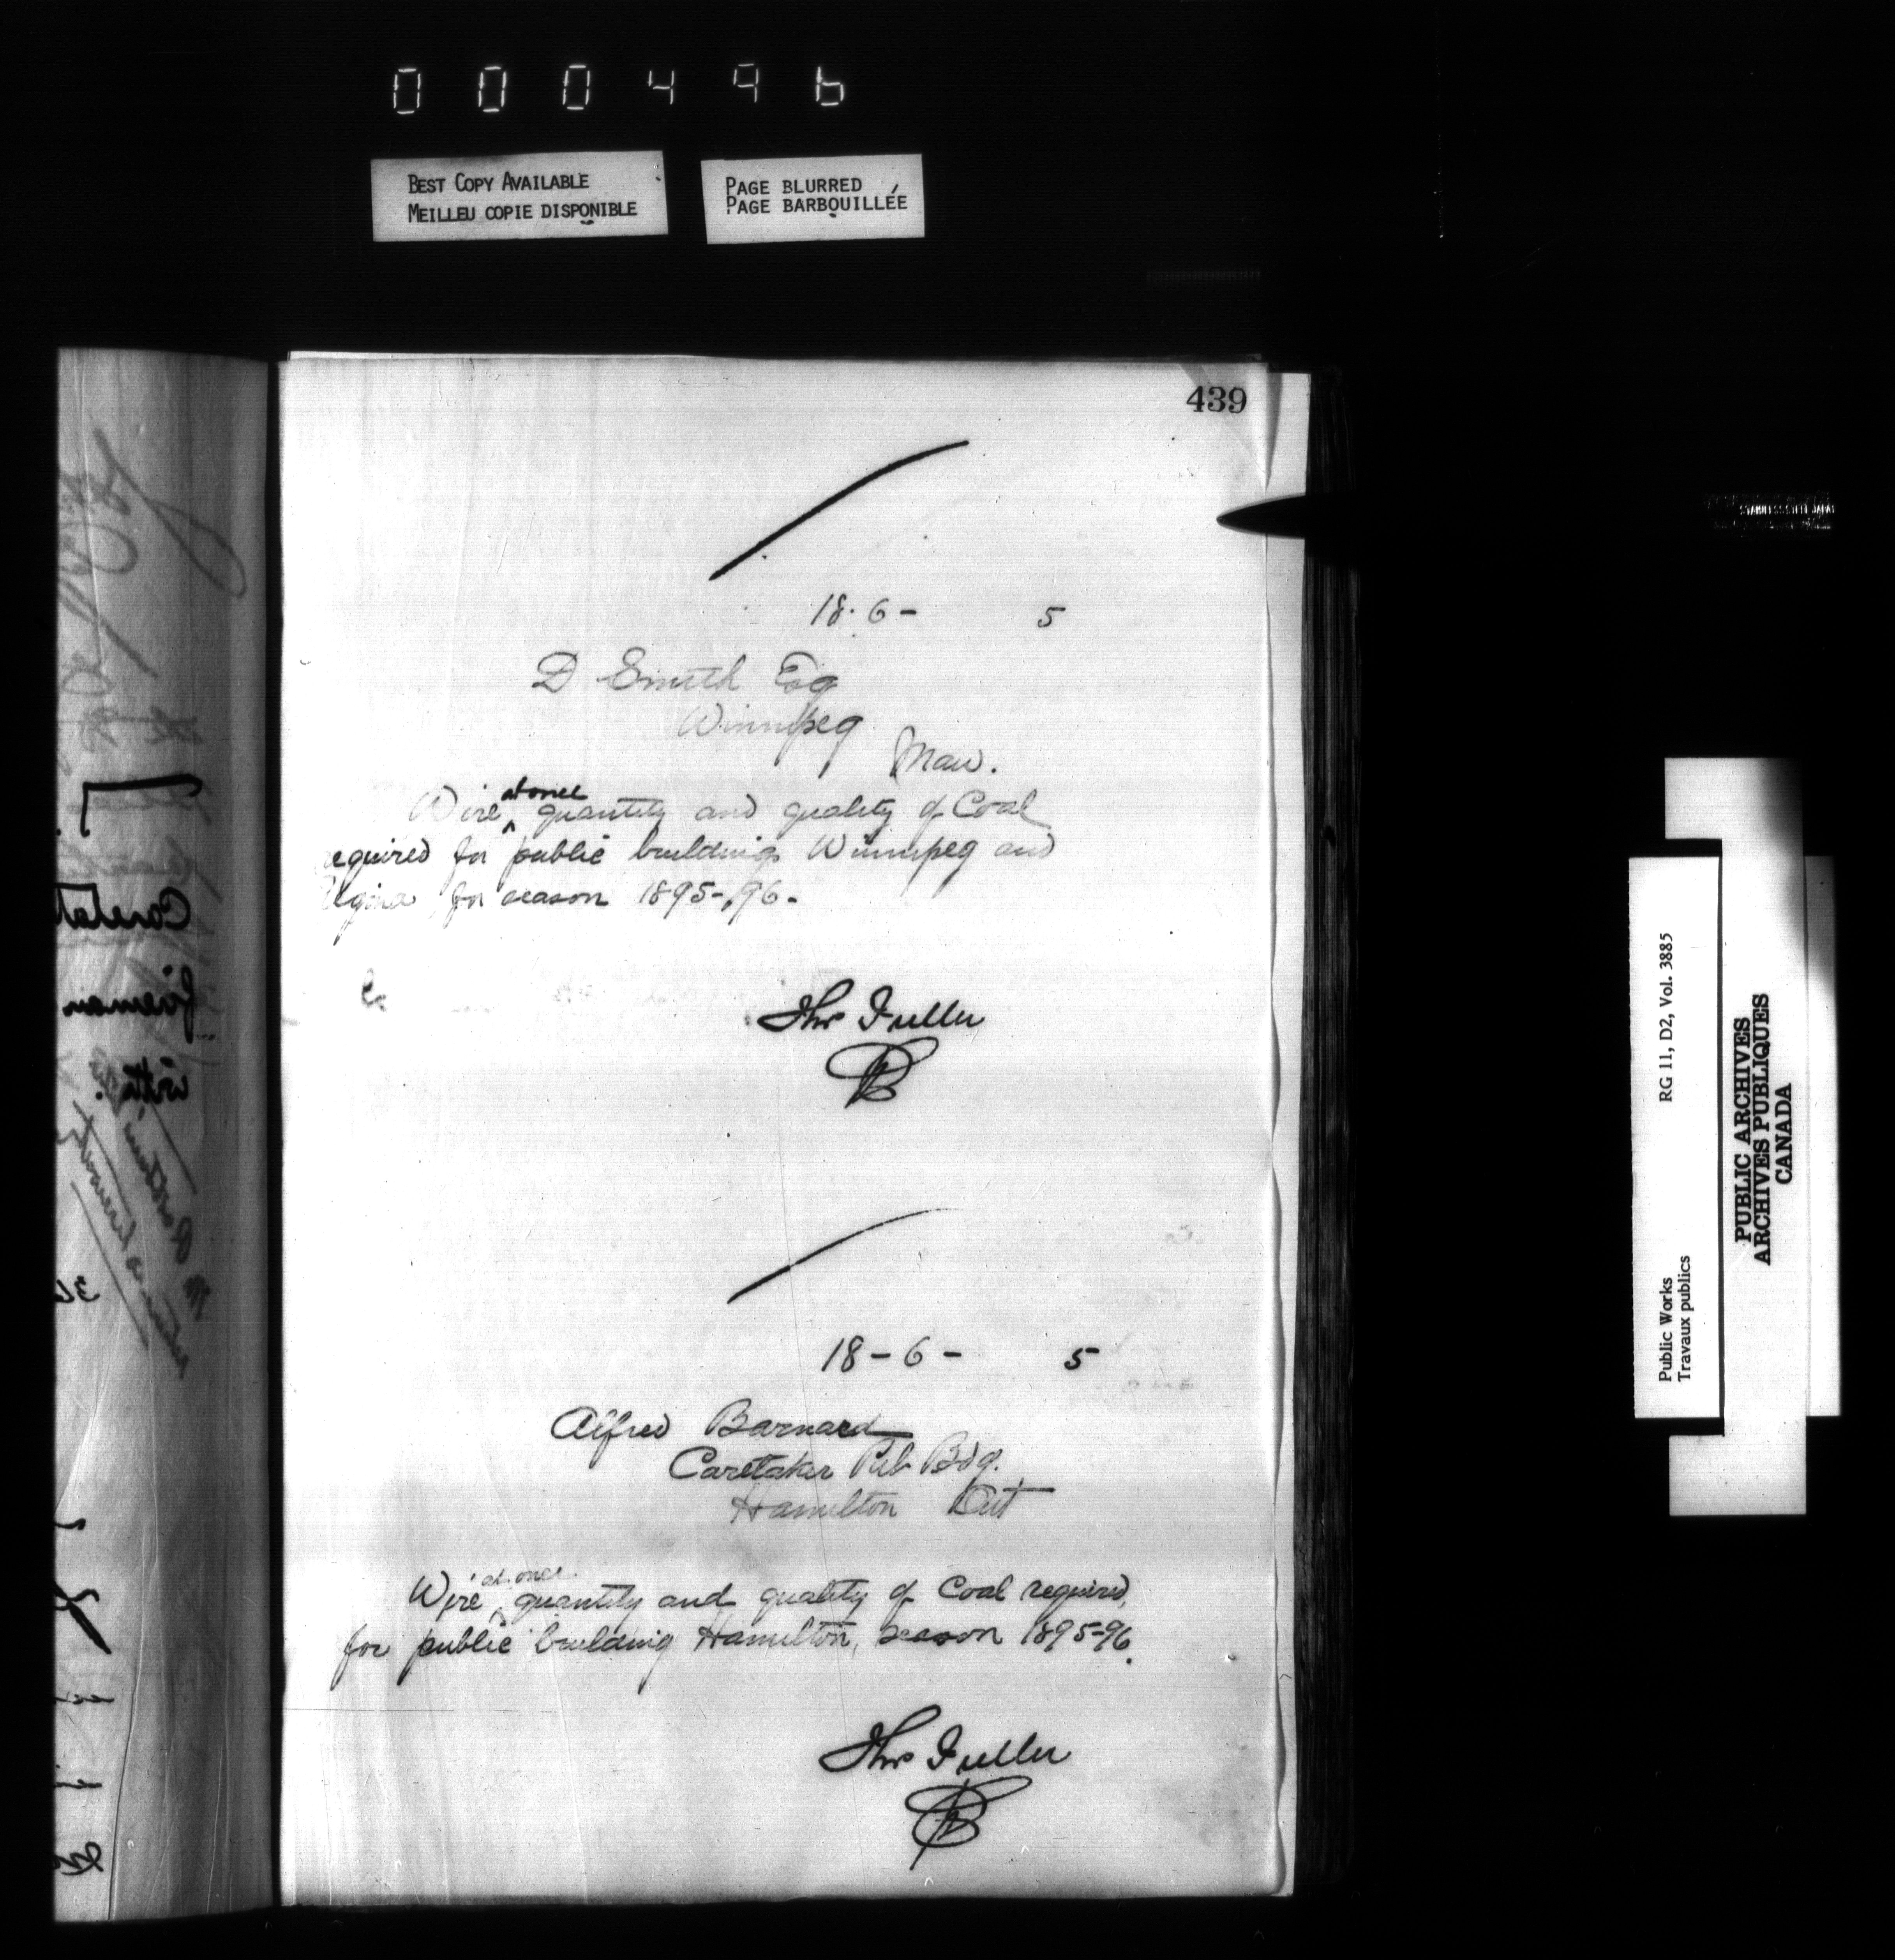 000496
BEST COPY AVAILABLE
MEILLEU COPIE DISPONIBLE
PAGE BLURRED
PAGE BARBOUILLÉE
439
18·6- 5
D Smith Esq
Winnipeg
Man.
Wire at once quantity and quality of Coal
required for public buildings Winnipeg and
Regina for season 1895-96.
Thos Fuller
B
18-6- 5
Alfred Barnard
Caretaker Pub Bdg.
Hamilton Ont
Wire at once quantity and quality of Coal required,
for public building Hamilton, season 1895-96.
Thos Fuller
B
Public Works
Travaux publics
RG 11, D2, Vol. 3885
PUBLIC ARCHIVES
ARCHIVES PUBLIQUES
CANADA